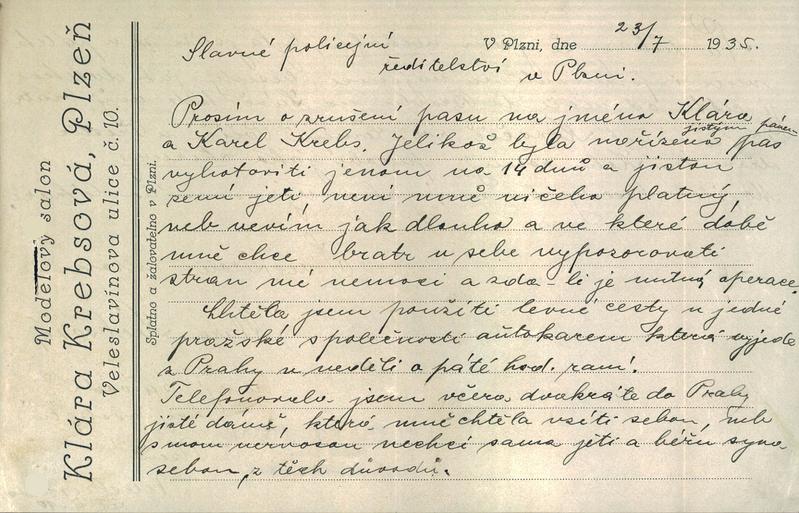 Modelový salon
Klára Krebsová, Plzeň
Veleslavínova ulice č. 10.
Splatno a žalovatelno v Plzni.
V Plzni, dne 23/7 1935.
Slavné policejní
ředitelství
v Plzni.
Prosím o zrušení pasu na jméno Klára
a Karel Krebs. Jelikož byla nařízena pas
jistým pánem
vyhotoviti jenom na 14 dnů a jistou
zemí jeti není mně ničeho platný,
neb nevím jak dlouho a ve které době
mně chce bratr u sebe vypozorovati
stran mé nemoci a zda-li je nutná operace.
Chtěla jsem použíti levné cesty u jedné
pražské společnosti autokarem která vyjede
z Prahy v neděli o páté hod. raní.
Telefonovala jsem včera dvakráte do Prahy
jisté dámě, která mně chtěla vzíti sebou, neb
jsmou nervosou nechci sama jeti a béřu syna
sebou, z těch důvodů.